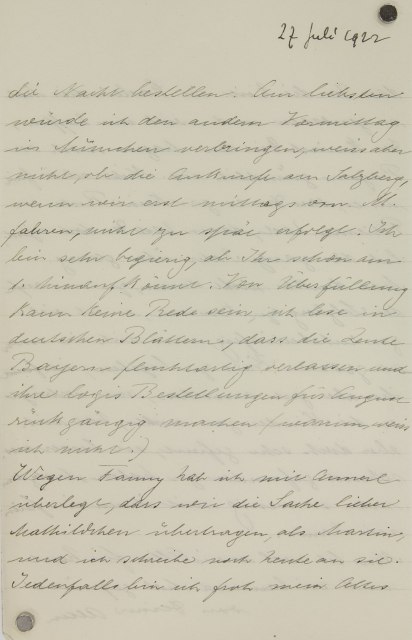 27 Juli 1922
die Nacht bestellen. Am liebsten
würde ich den andern Vormittag
in München verbringen, weiss aber
nicht, ob die Ankunft in Salzberg,
wenn wir erst mittags von M.
fahren, nicht zu spät erfolgt. Ich
bin sehr begierig, ob Ihr schon am
1. hinauf könnt. Von Überfüllung
kann keine Rede sein, ich lese in
deutschen Blättern, dass die Leute
Bayern fluchtartig verlassen und
ihre Logis Bestellungen für August
rückgängig machen (warum, weiss
ich nicht.)
Wegen Fanny hab ich mir Annerl
überlegt, dass wir die Sache lieber
Mathildchen übertragen als Martin,
und ich schreibe noch heute an sie.
Jedenfalls bin ich froh mein Altes